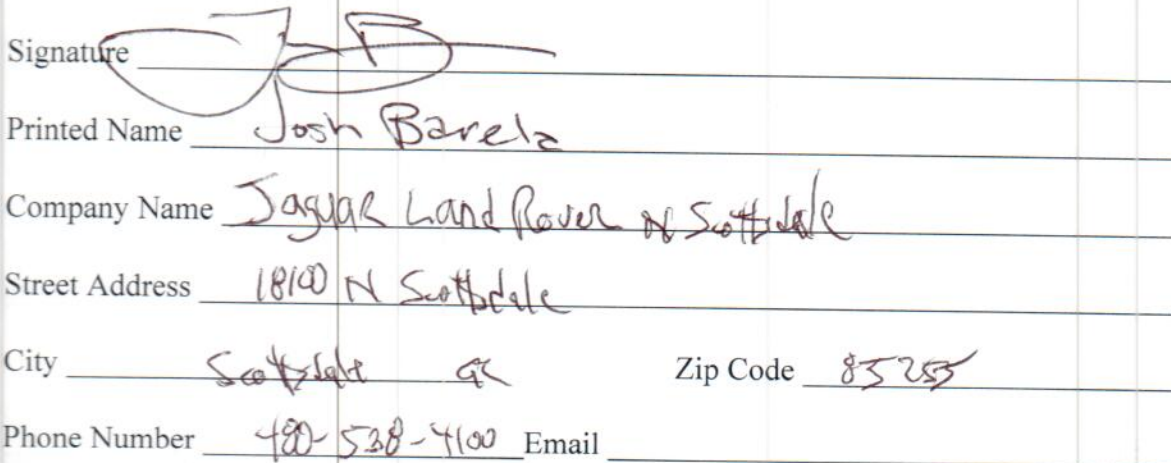 Signature
Printed Name Josh Barela
Company Name Jaguar Land Rover N Scottsdale
Street Address 18100 N Scottsdale
City Scottsdale az Zip Code 85255
Phone Number 480-538-4100 Email